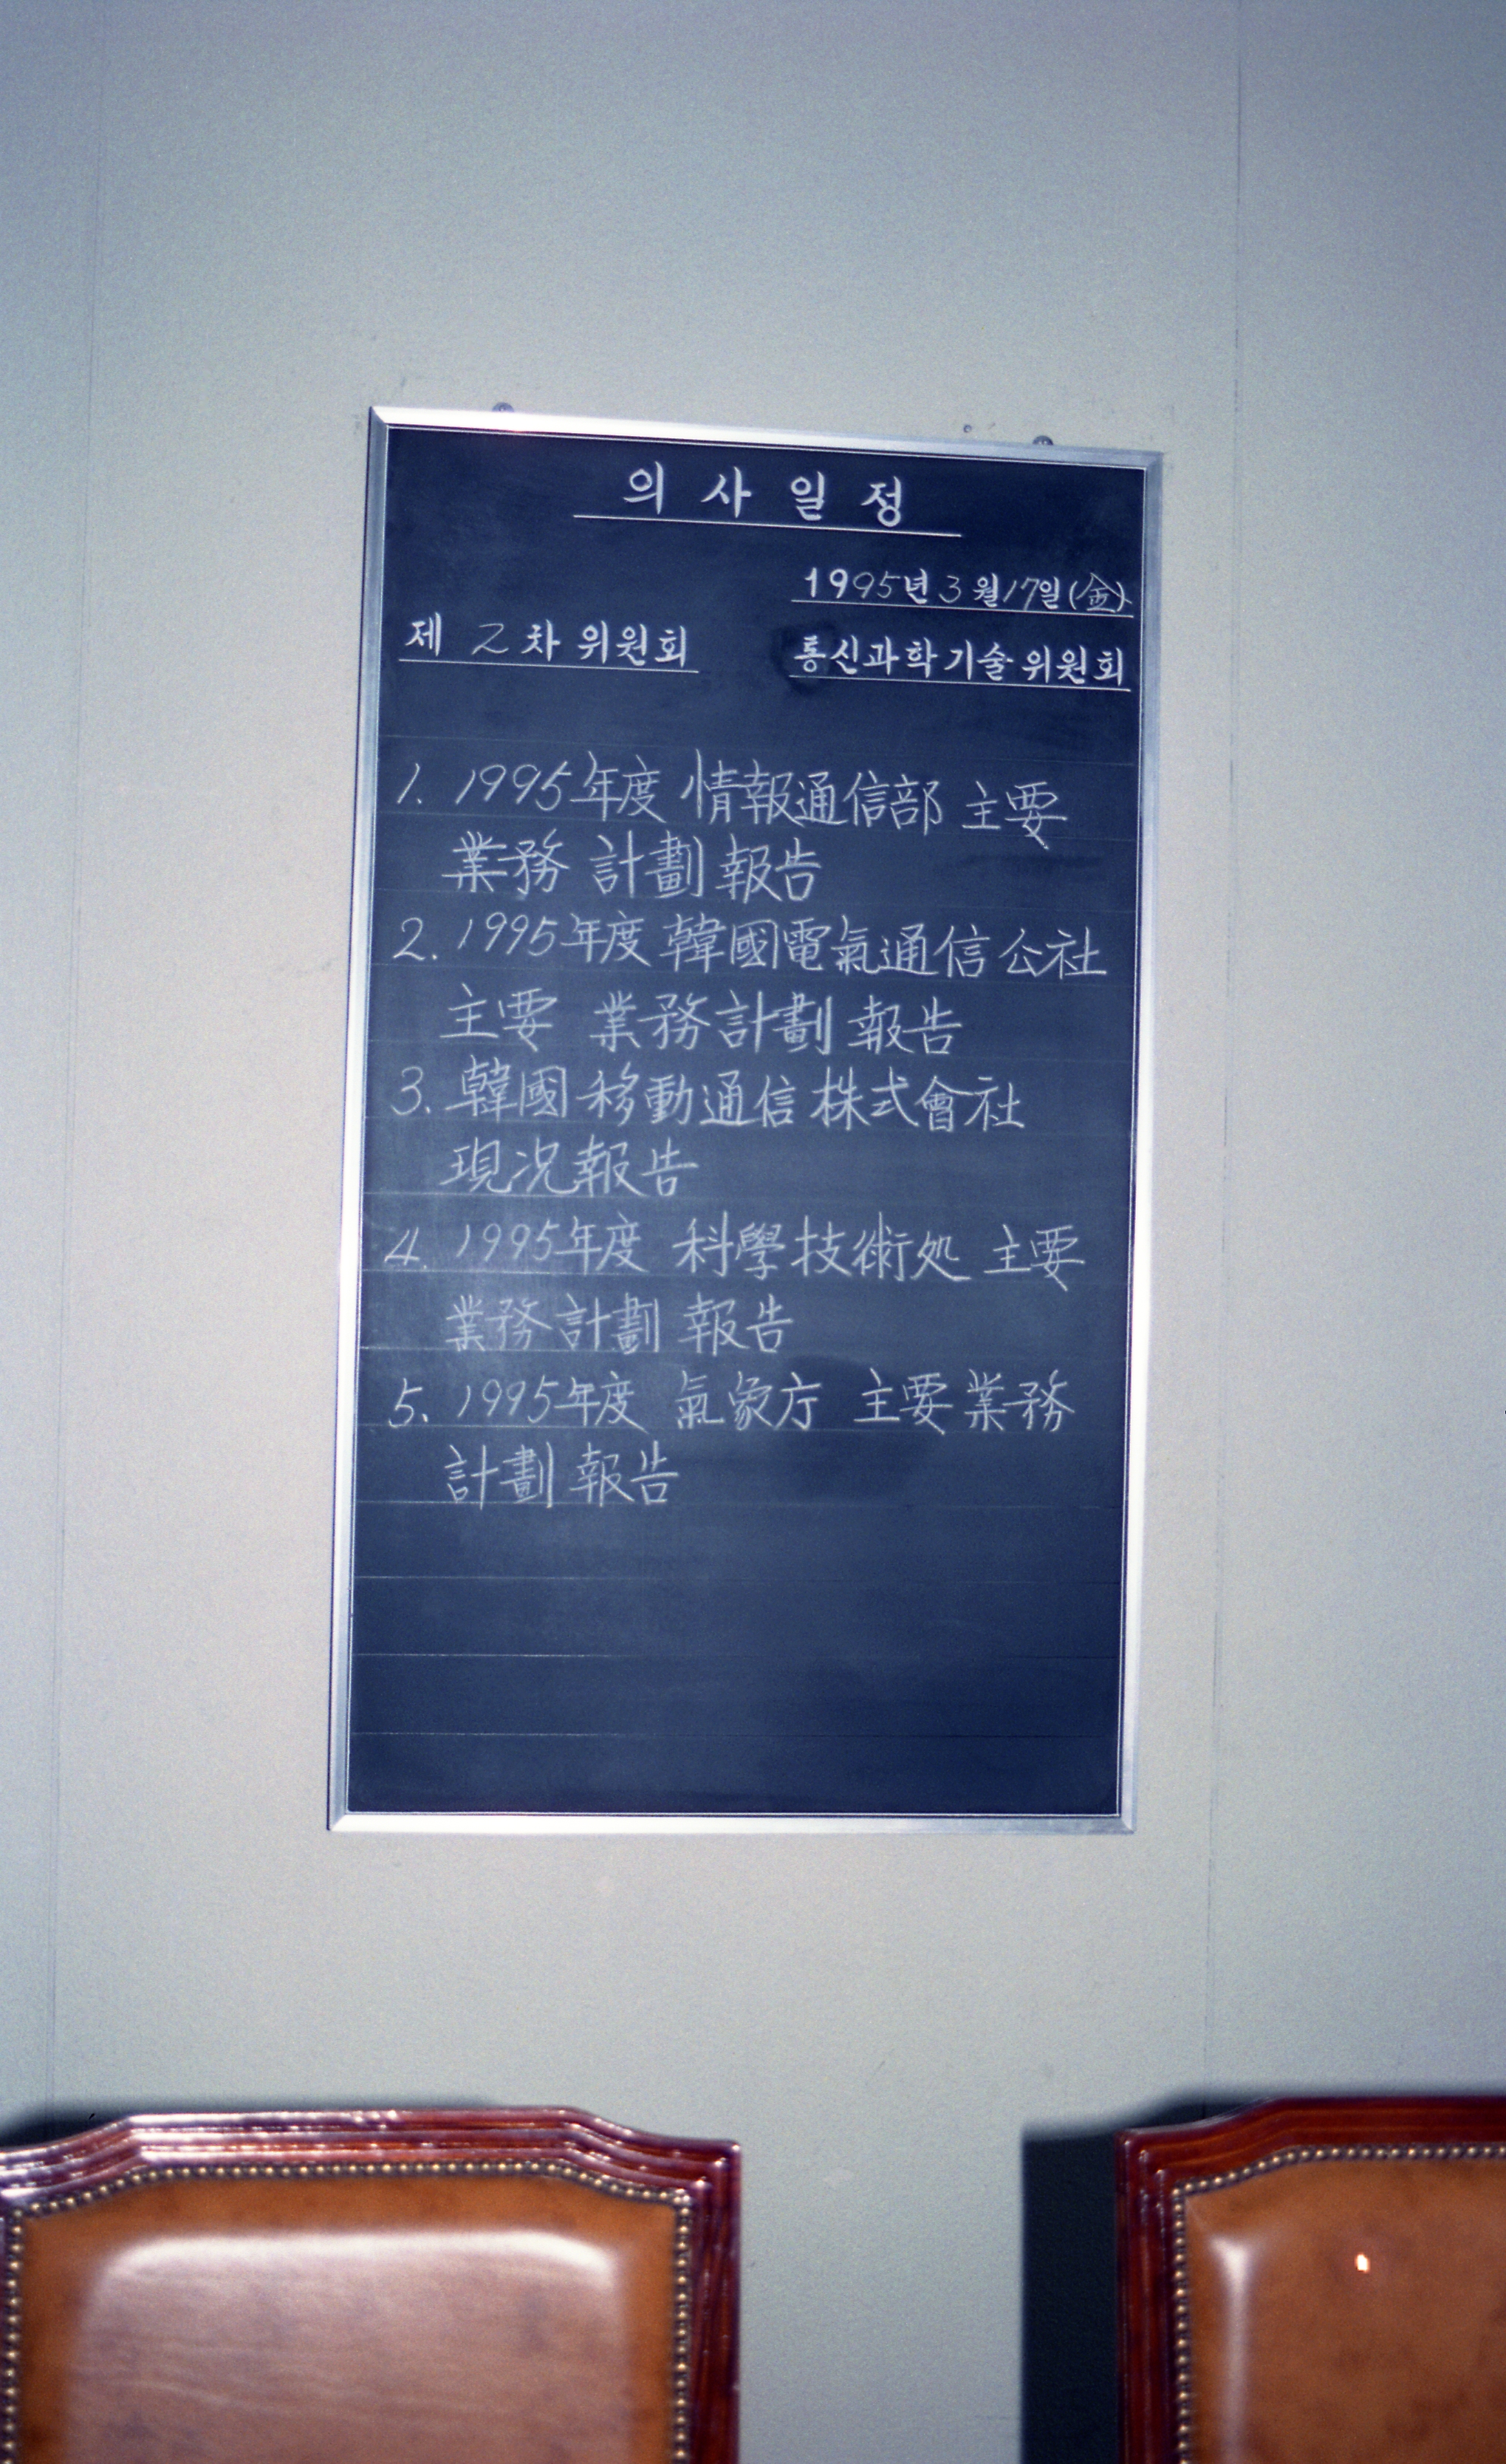 의사일정
1995년 3월 17일(金)
제 2차 위원회 통신과학기술위원회
1. 1995年度 情報通信部 主要
業務 計劃 報告
2. 1995年度 韓國電氣通信公社
主要 業務計劃 報告
3. 韓國移動通信株式會社
現況報告
4. 1995年度 科學技術処 主要
業務計劃 報告
5. 1995年度 氣象庁 主要業務
計劃 報告